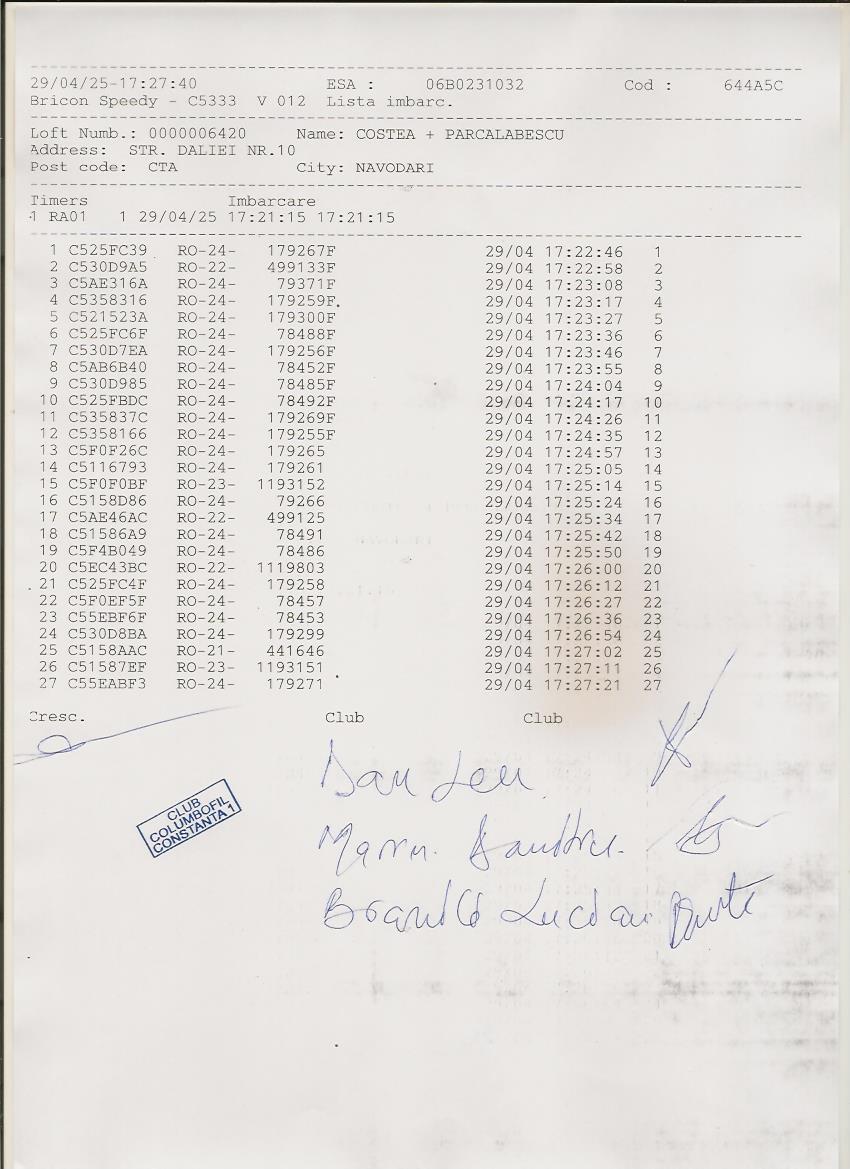 29/04/25-17:27:40 ESA : 06B0231032 Cod : 644A5C
Bricon Speedy - C5333 V 012 Lista imbarc.
Loft Numb.: 0000006420 Name: COSTEA + PARCALABESCU
Address: STR. DALIEI NR.10
Post code: CTA City: NAVODARI
Timers Imbarcare
1 RA01 1 29/04/25 17:21:15 17:21:15
1 C525FC39 RO-24- 179267F 29/04 17:22:46 1
2 C530D9A5 RO-22- 499133F 29/04 17:22:58 2
3 C5AE316A RO-24- 79371F 29/04 17:23:08 3
4 C5358316 RO-24- 179259F 29/04 17:23:17 4
5 C521523A RO-24- 179300F 29/04 17:23:27 5
6 C525FC6F RO-24- 78488F 29/04 17:23:36 6
7 C530D7EA RO-24- 179256F 29/04 17:23:46 7
8 C5AB6B40 RO-24- 78452F 29/04 17:23:55 8
9 C530D985 RO-24- 78485F 29/04 17:24:04 9
10 C525FBDC RO-24- 78492F 29/04 17:24:17 10
11 C535837C RO-24- 179269F 29/04 17:24:26 11
12 C5358166 RO-24- 179255F 29/04 17:24:35 12
13 C5F0F26C RO-24- 179265 29/04 17:24:57 13
14 C5116793 RO-24- 179261 29/04 17:25:05 14
15 C5F0F0BF RO-23- 1193152 29/04 17:25:14 15
16 C5158D86 RO-24- 79266 29/04 17:25:24 16
17 C5AE46AC RO-22- 499125 29/04 17:25:34 17
18 C51586A9 RO-24- 78491 29/04 17:25:42 18
19 C5F4B049 RO-24- 78486 29/04 17:25:50 19
20 C5EC43BC RO-22- 1119803 29/04 17:26:00 20
21 C525FC4F RO-24- 179258 29/04 17:26:12 21
22 C5F0EF5F RO-24- 78457 29/04 17:26:27 22
23 C55EBF6F RO-24- 78453 29/04 17:26:36 23
24 C530D8BA RO-24- 179299 29/04 17:26:54 24
25 C5158AAC RO-21- 441646 29/04 17:27:02 25
26 C51587EF RO-23- 1193151 29/04 17:27:11 26
27 C55EABF3 RO-24- 179271 29/04 17:27:21 27
Cresc. Club Club
Dan
CLUB
COLUMBOFIL
CONSTANTA 1
Lucian